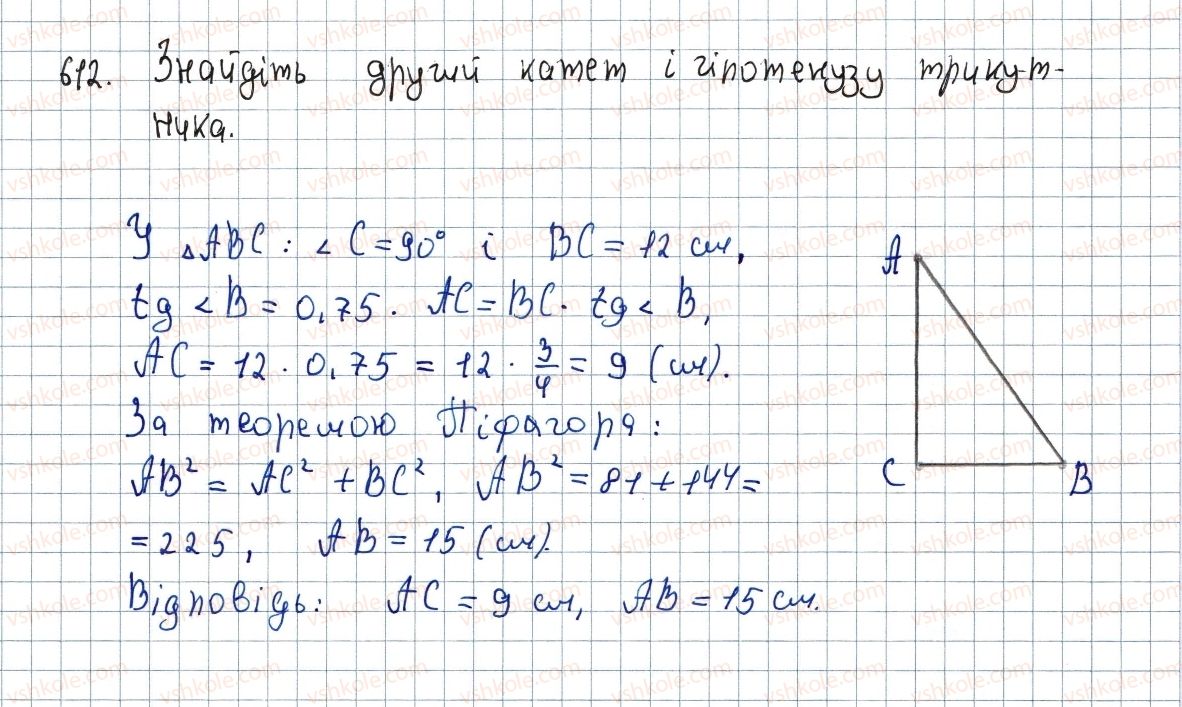 612. Знайдіть другий катет і гіпотенузу трикут-
ника.
У △ABC: ∠C=90° і BC=12 см,
tg∠B=0,75. AC=BC·tg∠B,
AC=12·0,75=12·3/4=9 (см).
За теоремою Піфагоря:
AB²=AC²+BC², AB²=81+144=
=225, AB=15 (см).
Відповідь: AC=9 см, AB=15 см.
A
C
B
vshkole.com